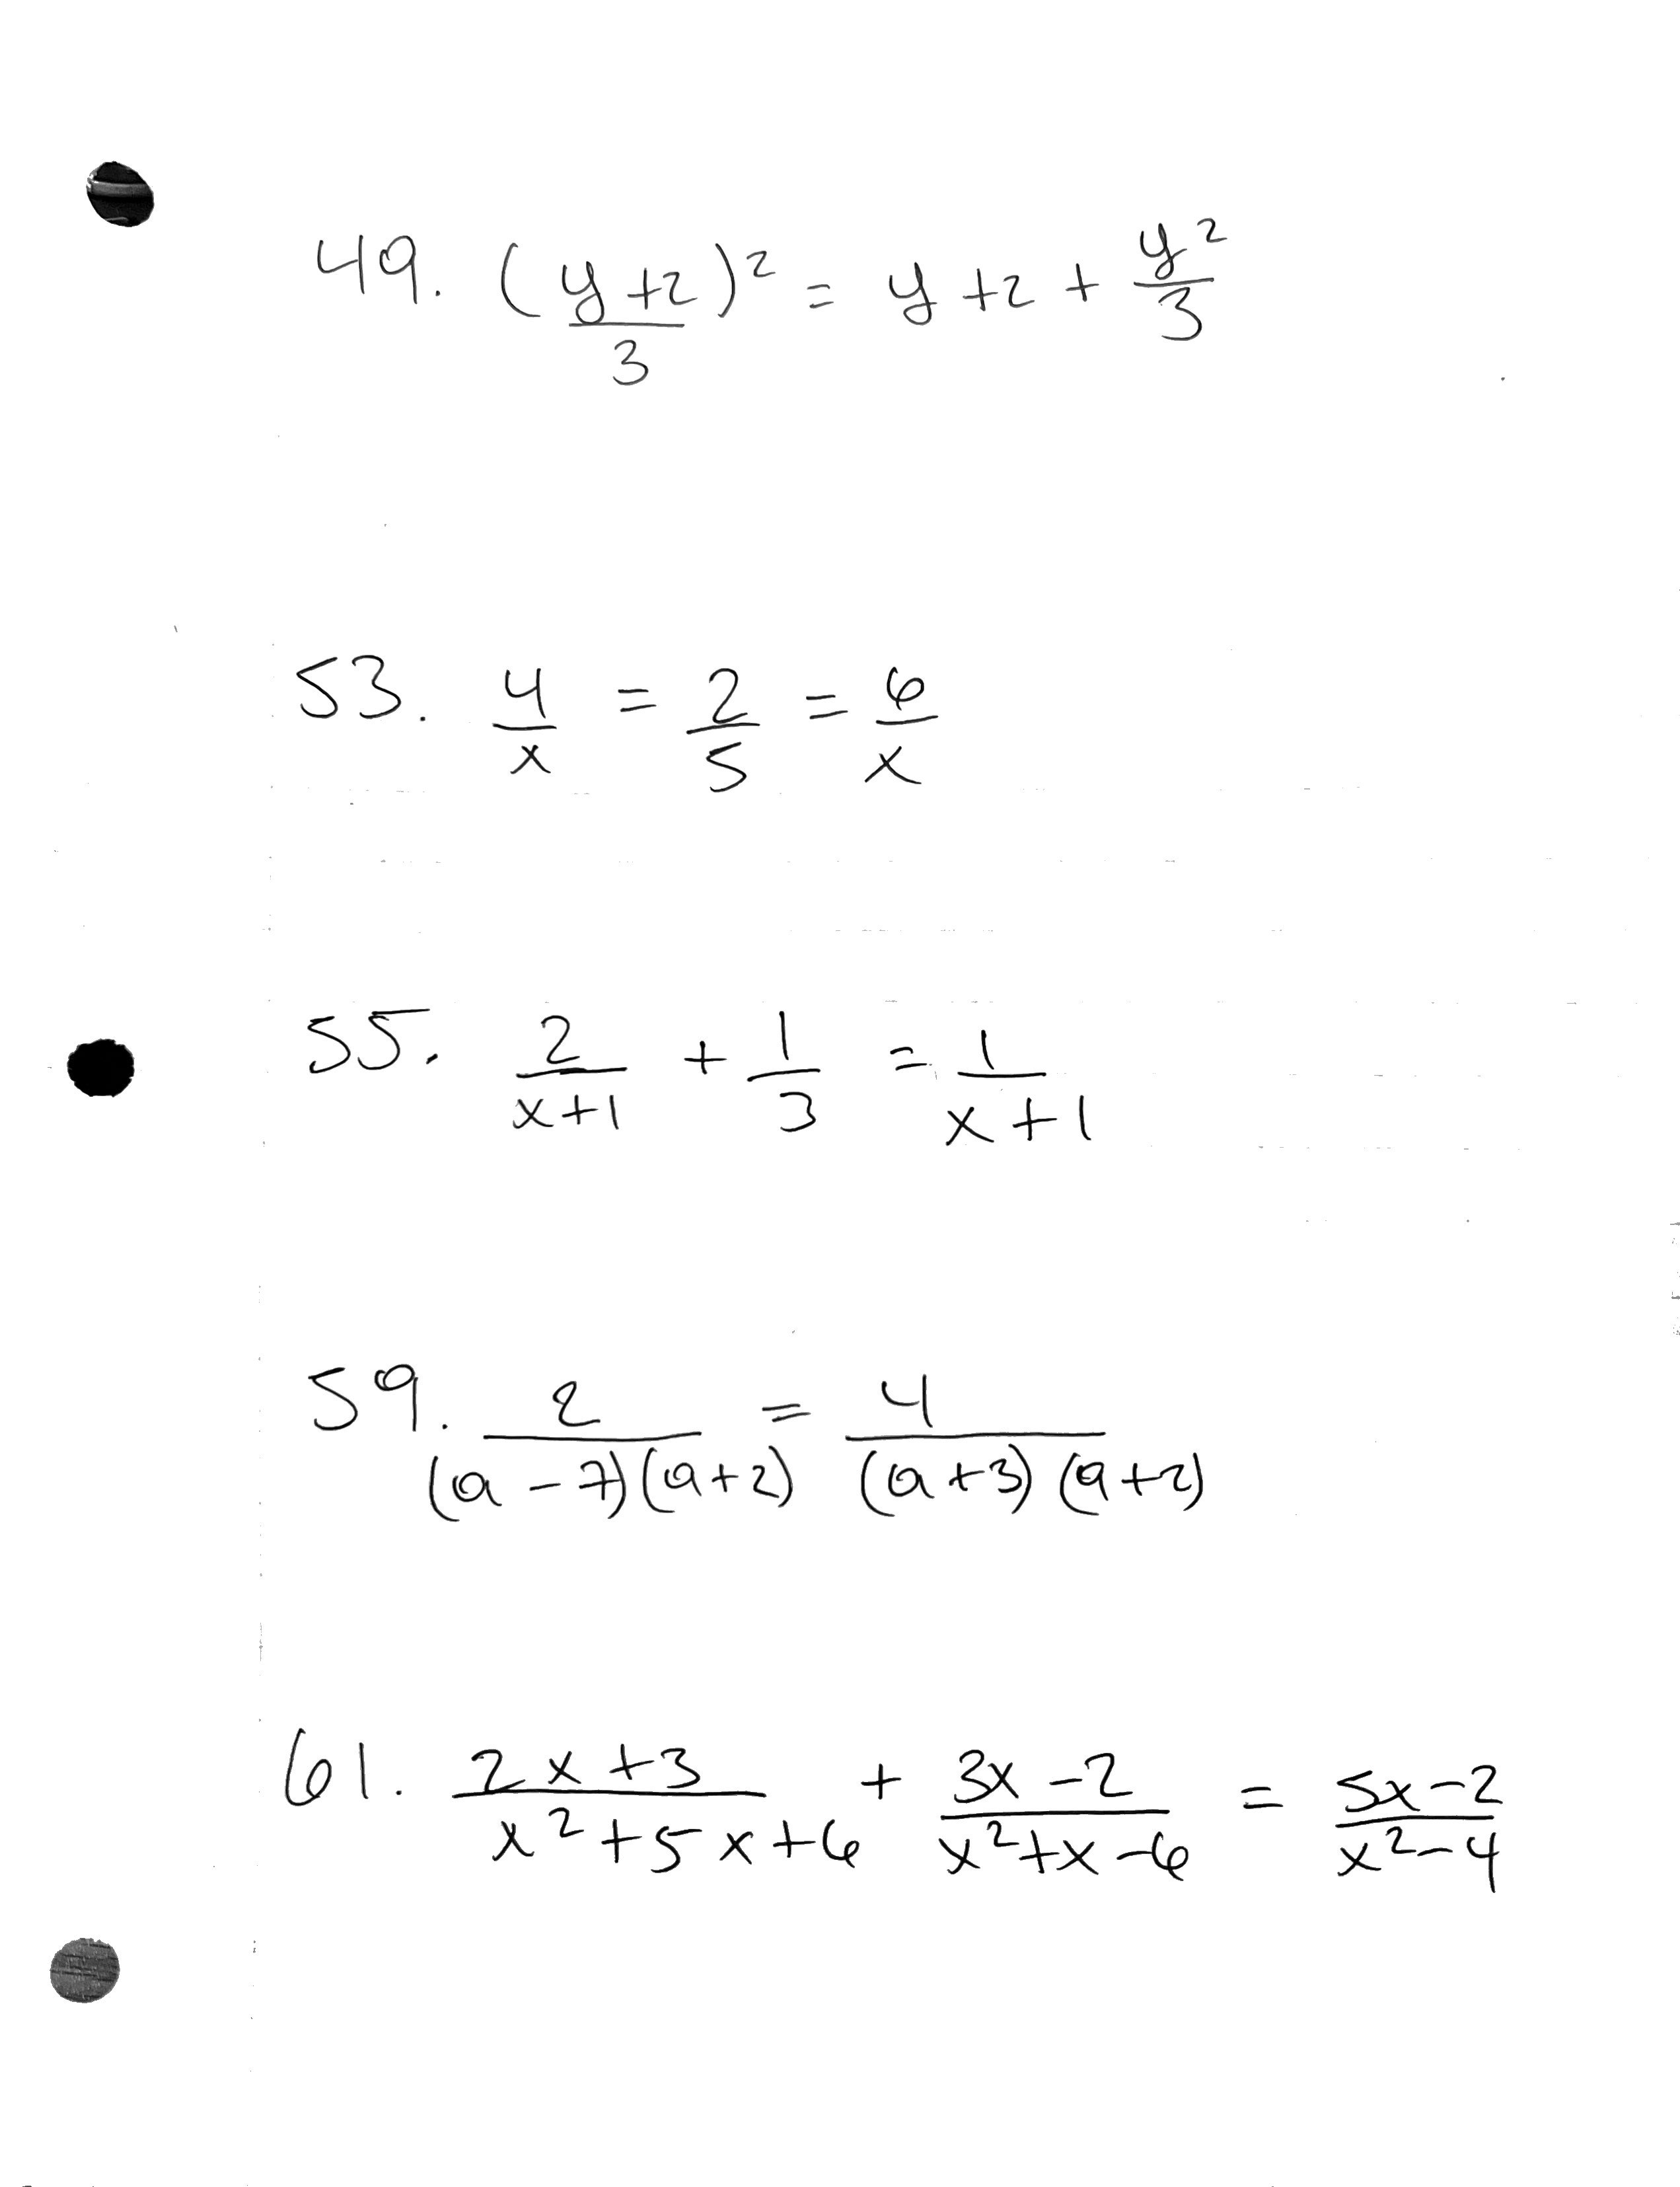 49. (y+2)² / 3 = y + 2 + y²/3
53. 4/x = 2/5 = 6/x
55. 2/(x+1) + 1/3 = 1/(x+1)
59. 2/((a-7)(a+2)) = 4/((a+3)(a+2))
61. (2x+3)/(x²+5x+6) + (3x-2)/(x²+x-6) = (5x-2)/(x²-4)